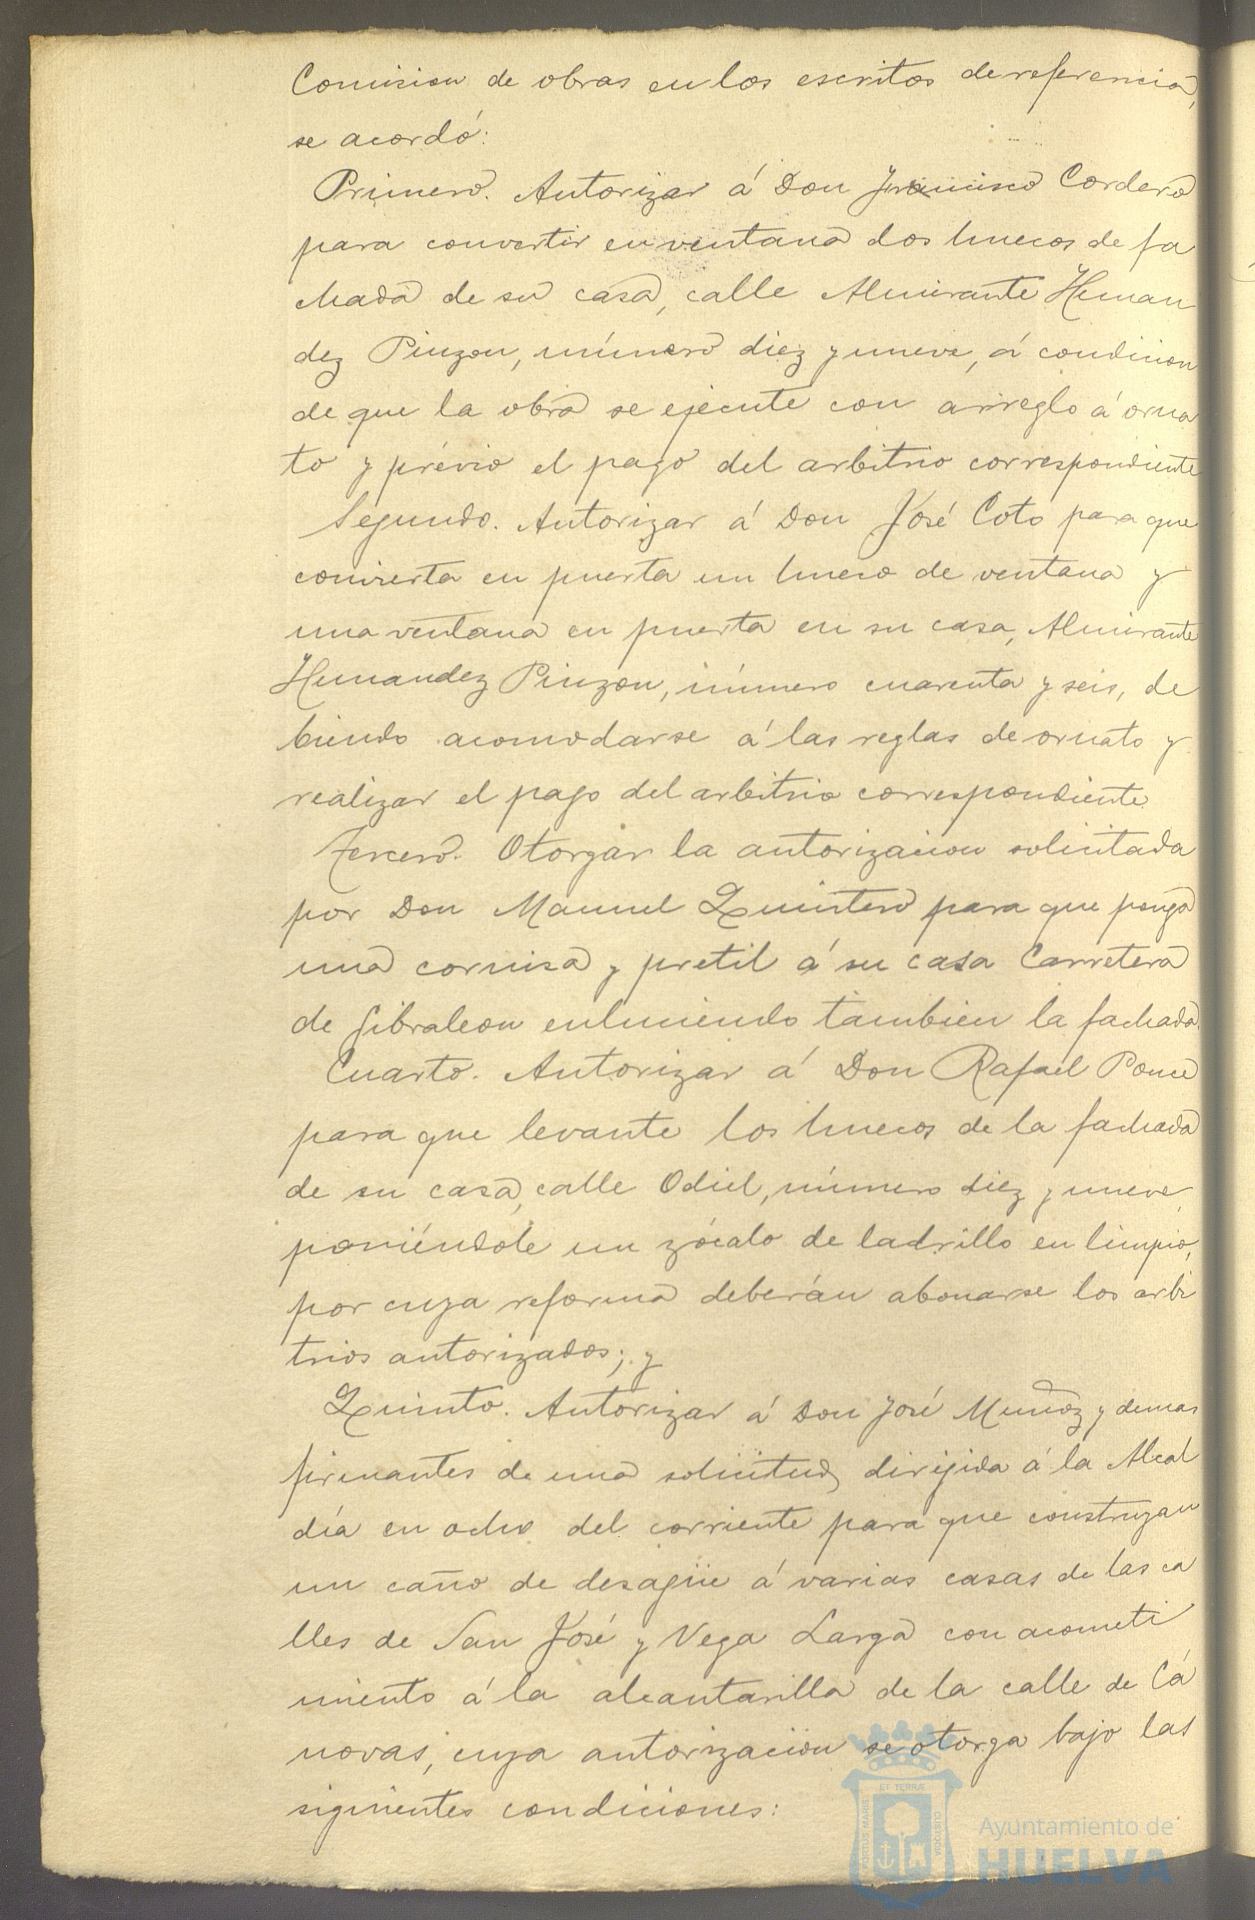 Comision de obras en los escritos de referencia,
se acordó:
Primero. Autorizar á Don Francisco Cordero
para convertir en ventana dos huecos de fa
chada de su casa, calle Almirante Hernan
dez Pinzon, número diez y nueve, á condicion
de que la obra se ejecute con arreglo á orna
to y prévio el pago del arbitrio correspondiente
Segundo. Autorizar á Don José Coto para que
convierta en puerta un hueco de ventana y
una ventana en puerta en su casa, Almirante
Hernandez Pinzon, número cuarenta y seis, de
biendo acomodarse á las reglas de ornato y
realizar el pago del arbitrio correspondiente
Tercero. Otorgar la autorizacion solicitada
por Don Manuel Quintero para que ponga
una cornisa y pretil á su casa Carretera
de Gibraleon enluciendo tambien la fachada.
Cuarto. Autorizar á Don Rafael Ponce
para que levante los huecos de la fachada
de su casa, calle Odiel, número diez y nueve,
poniéndole un zócalo de ladrillo en limpio,
por cuya reforma deberán abonarse los arbi
trios autorizados; y
Quinto. Autorizar á Don José Muñoz y demas
firmantes de una solicitud, dirijida á la Alcal
día en ocho del corriente para que construyan
un caño de desagüe á varias casas de las ca
lles de San José y Vega Larga con acometi
miento á la alcantarilla de la calle de Cá
novas, cuya autorizacion se otorga bajo las
siguientes condiciones:
ET TERRÆ
PORTUS MARIS
CUSTODIA
Ayuntamiento de
HUELVA